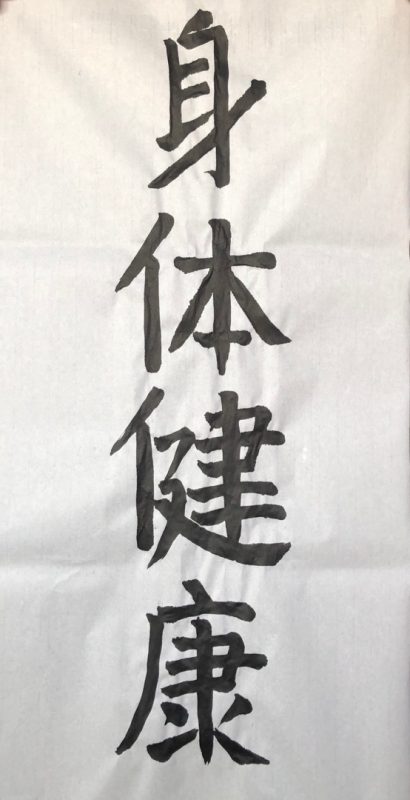 身体健康